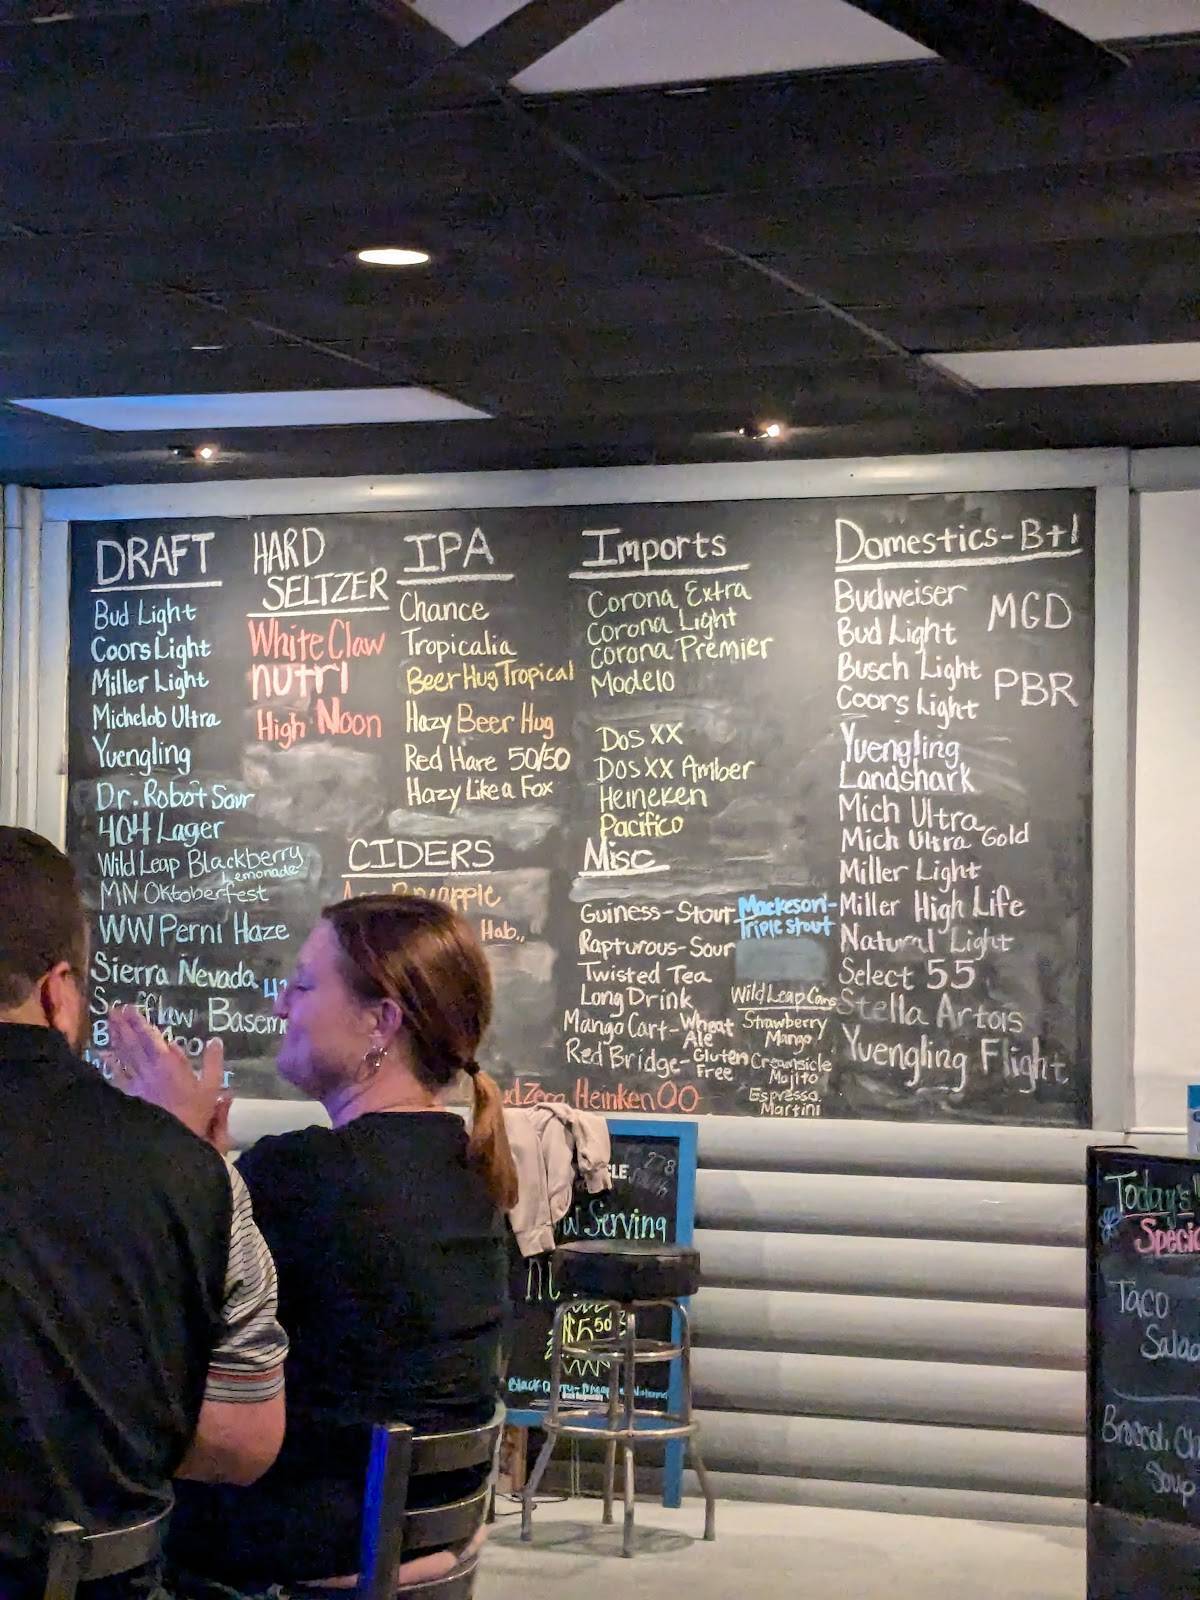 DRAFT
Bud Light
Coors Light
Miller Light
Michelob Ultra
Yuengling
Dr. Robot Sour
404 Lager
Wild Leap Blackberry
Lemonade
MN Oktoberfest
WW Perni Haze
Sierra Nevada
Basem
HARD
SELTZER
White Claw
nutrl
High Noon
IPA
Chance
Tropicalia
Beer Hug Tropical
Hazy Beer Hug
Red Hare 50/50
Hazy Like a Fox
CIDERS
Hab..
Imports
Corona Extra
Corona Light
Corona Premier
Modelo
Dos XX
Dos XX Amber
Heineken
Pacifico
Misc
Guiness-Stout
Rapturous-Sour
Twisted Tea
Long Drink
Mango Cart-Wheat
Ale
Red Bridge-Gluten
Free
Zero Heinken OO
Mackeson-
Triple stout
Wild Leap Cans
Strawberry
Mango
Creamsicle
Mojito
Espresso
Martini
Domestics-Btl
Budweiser
Bud Light
Busch Light
Coors Light
Yuengling
Landshark
Mich Ultra
Mich Ultra Gold
Miller Light
Miller High Life
Natural Light
Select 55
Stella Artois
Yuengling Flight
MGD
PBR
Serving
$5.50
Today's
Specia
Taco
Salad
Broccoli Ch
Soup